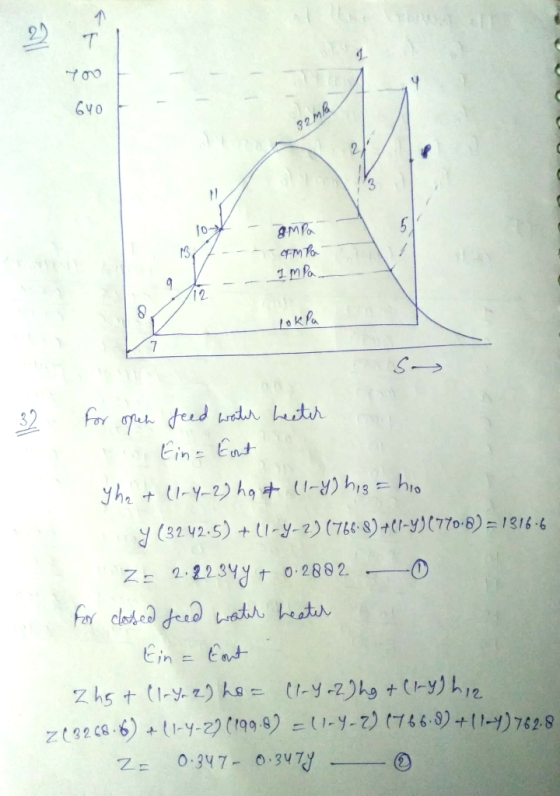 2)
T
↑
700
640
1
4
32 MPa
2
3
11
10
8 MPa
5
13
4 MPa
9
1 MPa
12
8
10 kPa
7
S →
3)
For open feed water heater
Ein = Eout
yh2 + (1-y-z) h9 + (1-y) h13 = h10
y (3242.5) + (1-y-z) (766.8) + (1-y)(770.8) = 1316.6
Z = 2.2234y + 0.2882 —— ①
For closed feed water heater
Ein = Eout
Zh5 + (1-y-z) h8 = (1-y-z) h9 + (1-y) h12
Z(3268.6) + (1-y-z) (199.8) = (1-y-z) (766.8) + (1-y) 762.8
Z = 0.347 - 0.347y —— ②